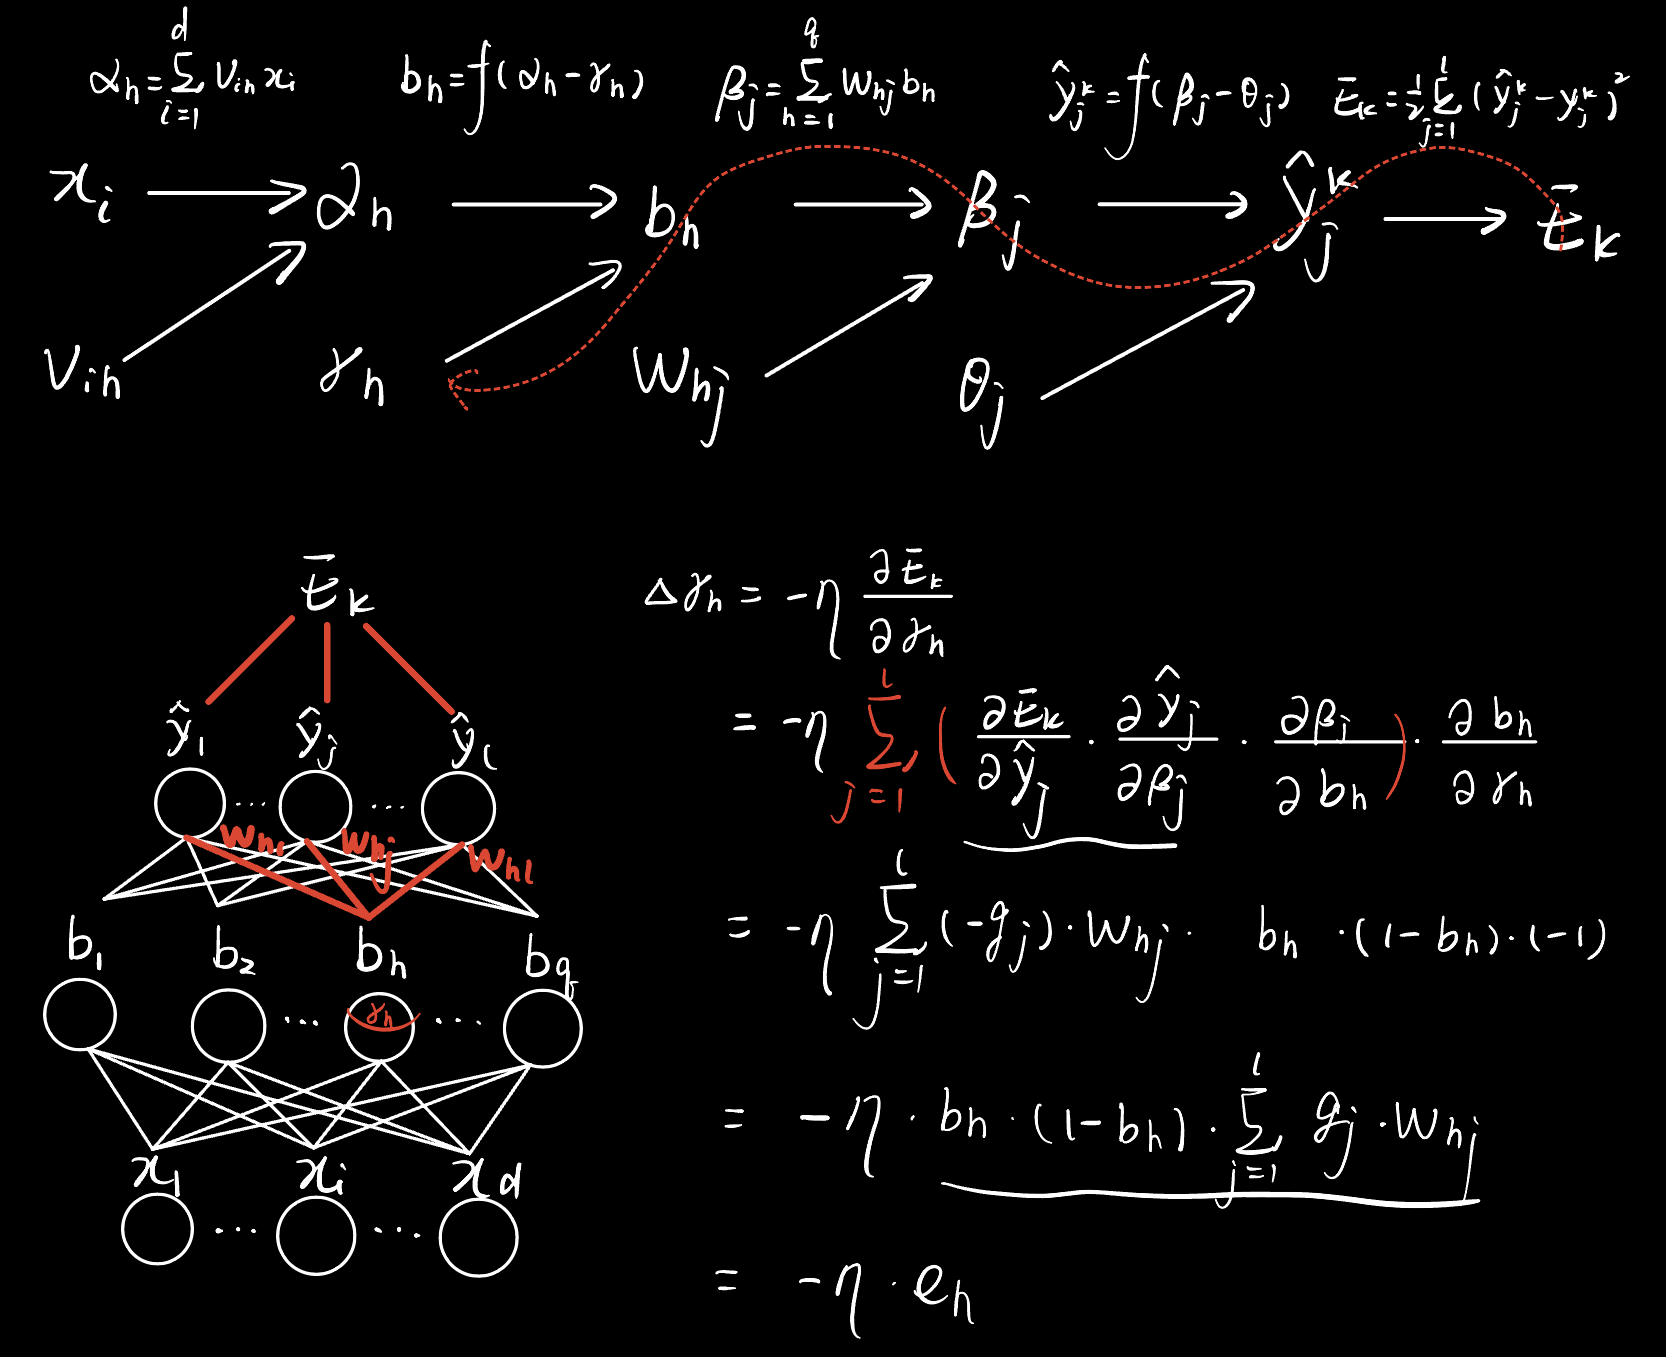 αₕ = Σᵢ₌₁ᵈ vᵢₕ xᵢ   bₕ = f(αₕ − γₕ)   βⱼ = Σₕ₌₁^q wₕⱼ bₕ   ŷⱼᵏ = f(βⱼ − θⱼ)   Eₖ = ½ Σⱼ₌₁ˡ (ŷⱼᵏ − yⱼᵏ)²
xᵢ → αₕ → bₕ → βⱼ → ŷⱼᵏ → Eₖ
vᵢₕ γₕ wₕⱼ θⱼ
Eₖ
ŷ₁ ŷⱼ ŷₗ
... ...
wₕ₁ wₕⱼ wₕₗ
b₁ b₂ bₕ b_q
... γₕ ...
x₁ xᵢ x_d
... ...
Δγₕ = −η ∂Eₖ/∂γₕ
= −η Σⱼ₌₁ˡ (∂Eₖ/∂ŷⱼ · ∂ŷⱼ/∂βⱼ · ∂βⱼ/∂bₕ) · ∂bₕ/∂γₕ
= −η Σⱼ₌₁ˡ (−gⱼ) · wₕⱼ · bₕ · (1 − bₕ) · (−1)
= −η · bₕ · (1 − bₕ) · Σⱼ₌₁ˡ gⱼ · wₕⱼ
= −η · eₕ